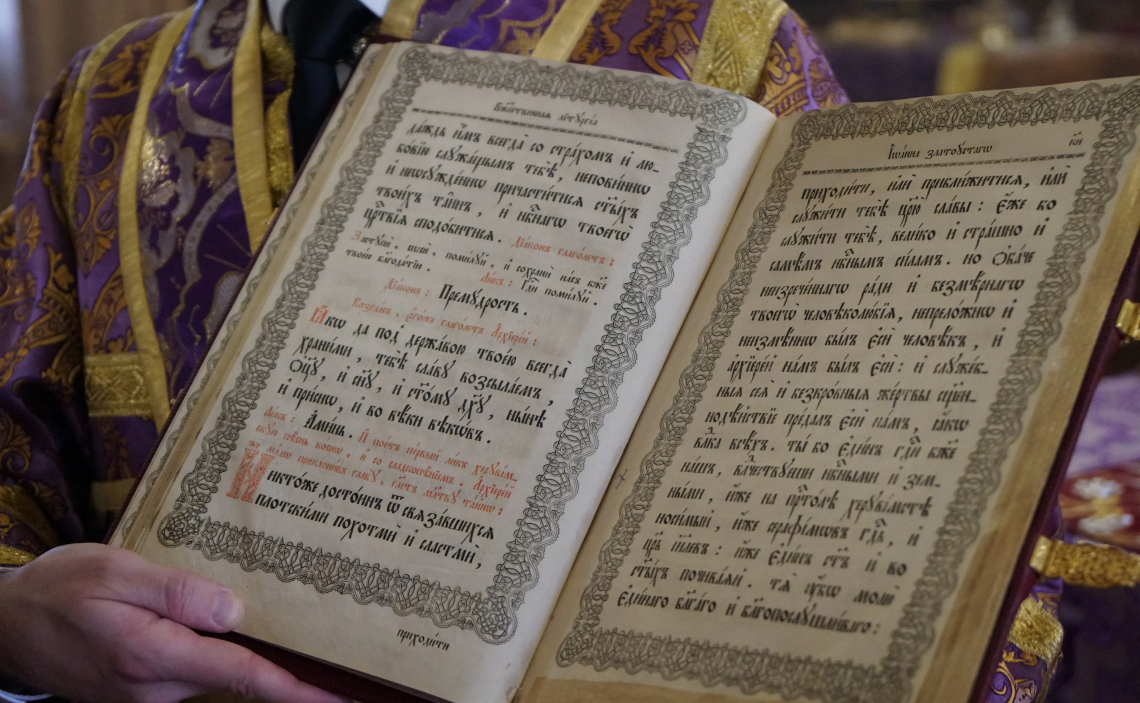 Бж҃ественнаѧ лїтꙋргі́а
да́ждь и҆̀мъ всегда̀ со стра́хомъ и҆ лю-
бо́вїю слꙋжа́щымъ тебѣ̀, непови́ннѡ
и҆ неѡсꙋжде́ннѡ причасти́тисѧ ст҃ы́хъ
твои́хъ та̑инъ, и҆ нбⷭ҇нагѡ твоегѡ̀
црⷭ҇твїѧ сподо́битисѧ. Дїа́конъ глаго́летъ:
Застꙋпѝ, спасѝ, поми́лꙋй, и҆ сохранѝ на́съ бж҃е
твое́ю благода́тїю. Ли́къ: Гдⷭ҇и поми́лꙋй.
Дїа́конъ: Премꙋ́дрость.
Возгла́съ, є҆го́же глаго́летъ А҆рхїере́й:
Ꙗ҆́кѡ да под̾ держа́вою твое́ю всегда̀
храни́ми, тебѣ̀ сла́вꙋ возсыла́емъ,
Ѻ҆ц҃ꙋ̀, и҆ сн҃ꙋ, и҆ ст҃о́мꙋ дх҃ꙋ, ны́нѣ
и҆ при́снѡ, и҆ во вѣ́ки вѣкѡ́въ.
Ли́къ: А҆ми́нь. И҆ пое́тъ пе́рвый ли́къ херꙋві́м-
скꙋю пѣ́снь ко́снѡ, и҆ со сладкопѣ́нїемъ, А҆рхїере́й
же ма́лѡ прикло́нивъ главꙋ̀, гл҃етъ мл҃твꙋ та́йнѡ:
Никто́же досто́инъ ѿ свѧза́вшихсѧ
плотски́ми похотьмѝ и҆ сластьмѝ,
приходи́ти
І҆ѡа́нна златоꙋ́стагѡ ки
приходи́ти, и҆лѝ прибли́житисѧ, и҆лѝ
слꙋжи́ти тебѣ̀ цр҃ю̀ сла́вы: Є҆́же бо
слꙋжи́ти тебѣ̀, вели́ко и҆ стра́шно и҆
самѣ̑мъ нбⷭ҇нымъ си́ламъ. но Ѻ҆ба́че
неизрече́ннагѡ ра́ди и҆ безмѣ́рнагѡ
твоегѡ̀ человѣколю́бїѧ, непрело́жнѡ и҆
неизмѣ́ннѡ бы́лъ є҆сѝ человѣ́къ, и҆
а҆рхїере́й на́мъ бы́лъ є҆сѝ: и҆ слꙋже́б-
ныѧ сеѧ̀ и҆ безкро́вныѧ же́ртвы сщ҃енн-
нодѣ́йствїе преда́лъ є҆сѝ на́мъ, ꙗ҆́кѡ
влⷣка всѣ́хъ. ты́ бо є҆ди́нъ гдⷭ҇и бж҃е
на́шъ, влⷣчествꙋеши нбⷭ҇ными и҆ зем-
ны́ми, и҆́же на прⷭ҇то́лѣ херꙋві́мстѣ
носи́мый, и҆́же серафі́мѡвъ гдⷭ҇ь, и҆
цр҃ь і҆и҃левъ: и҆́же є҆ди́нъ ст҃ъ и҆ во
ст҃ы́хъ почива́ѧй. тѧ̀ ᲂу҆́бѡ молю̀
є҆ди́наго бл҃га́го и҆ бл҃гопослꙋшли́ваго: